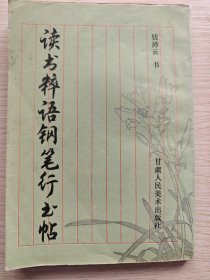 读书粹语钢笔行书帖
钱沛云 书
甘肃人民美术出版社